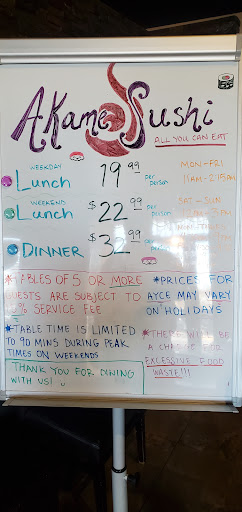 AKame Sushi
ALL YOU CAN EAT
WEEKDAY
Lunch 19 99 per person
MON-FRI
11AM-2:15PM
WEEKEND
Lunch $22 99 per person
SAT-SUN
DINNER $32 99 per person
*TABLES OF 5 OR MORE
GUESTS ARE SUBJECT TO
SERVICE FEE
*TABLE TIME IS LIMITED
TO 90 MINS DURING PEAK
TIMES ON WEEKENDS
THANK YOU FOR DINING
WITH US!
*PRICES FOR
AYCE MAY VARY
ON HOLIDAYS
*THERE WILL BE
A CHARGE FOR
EXCESSIVE FOOD
WASTE!!!